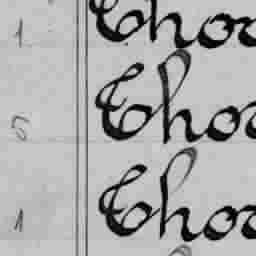 1 Choc
5 Choc
1 Choc